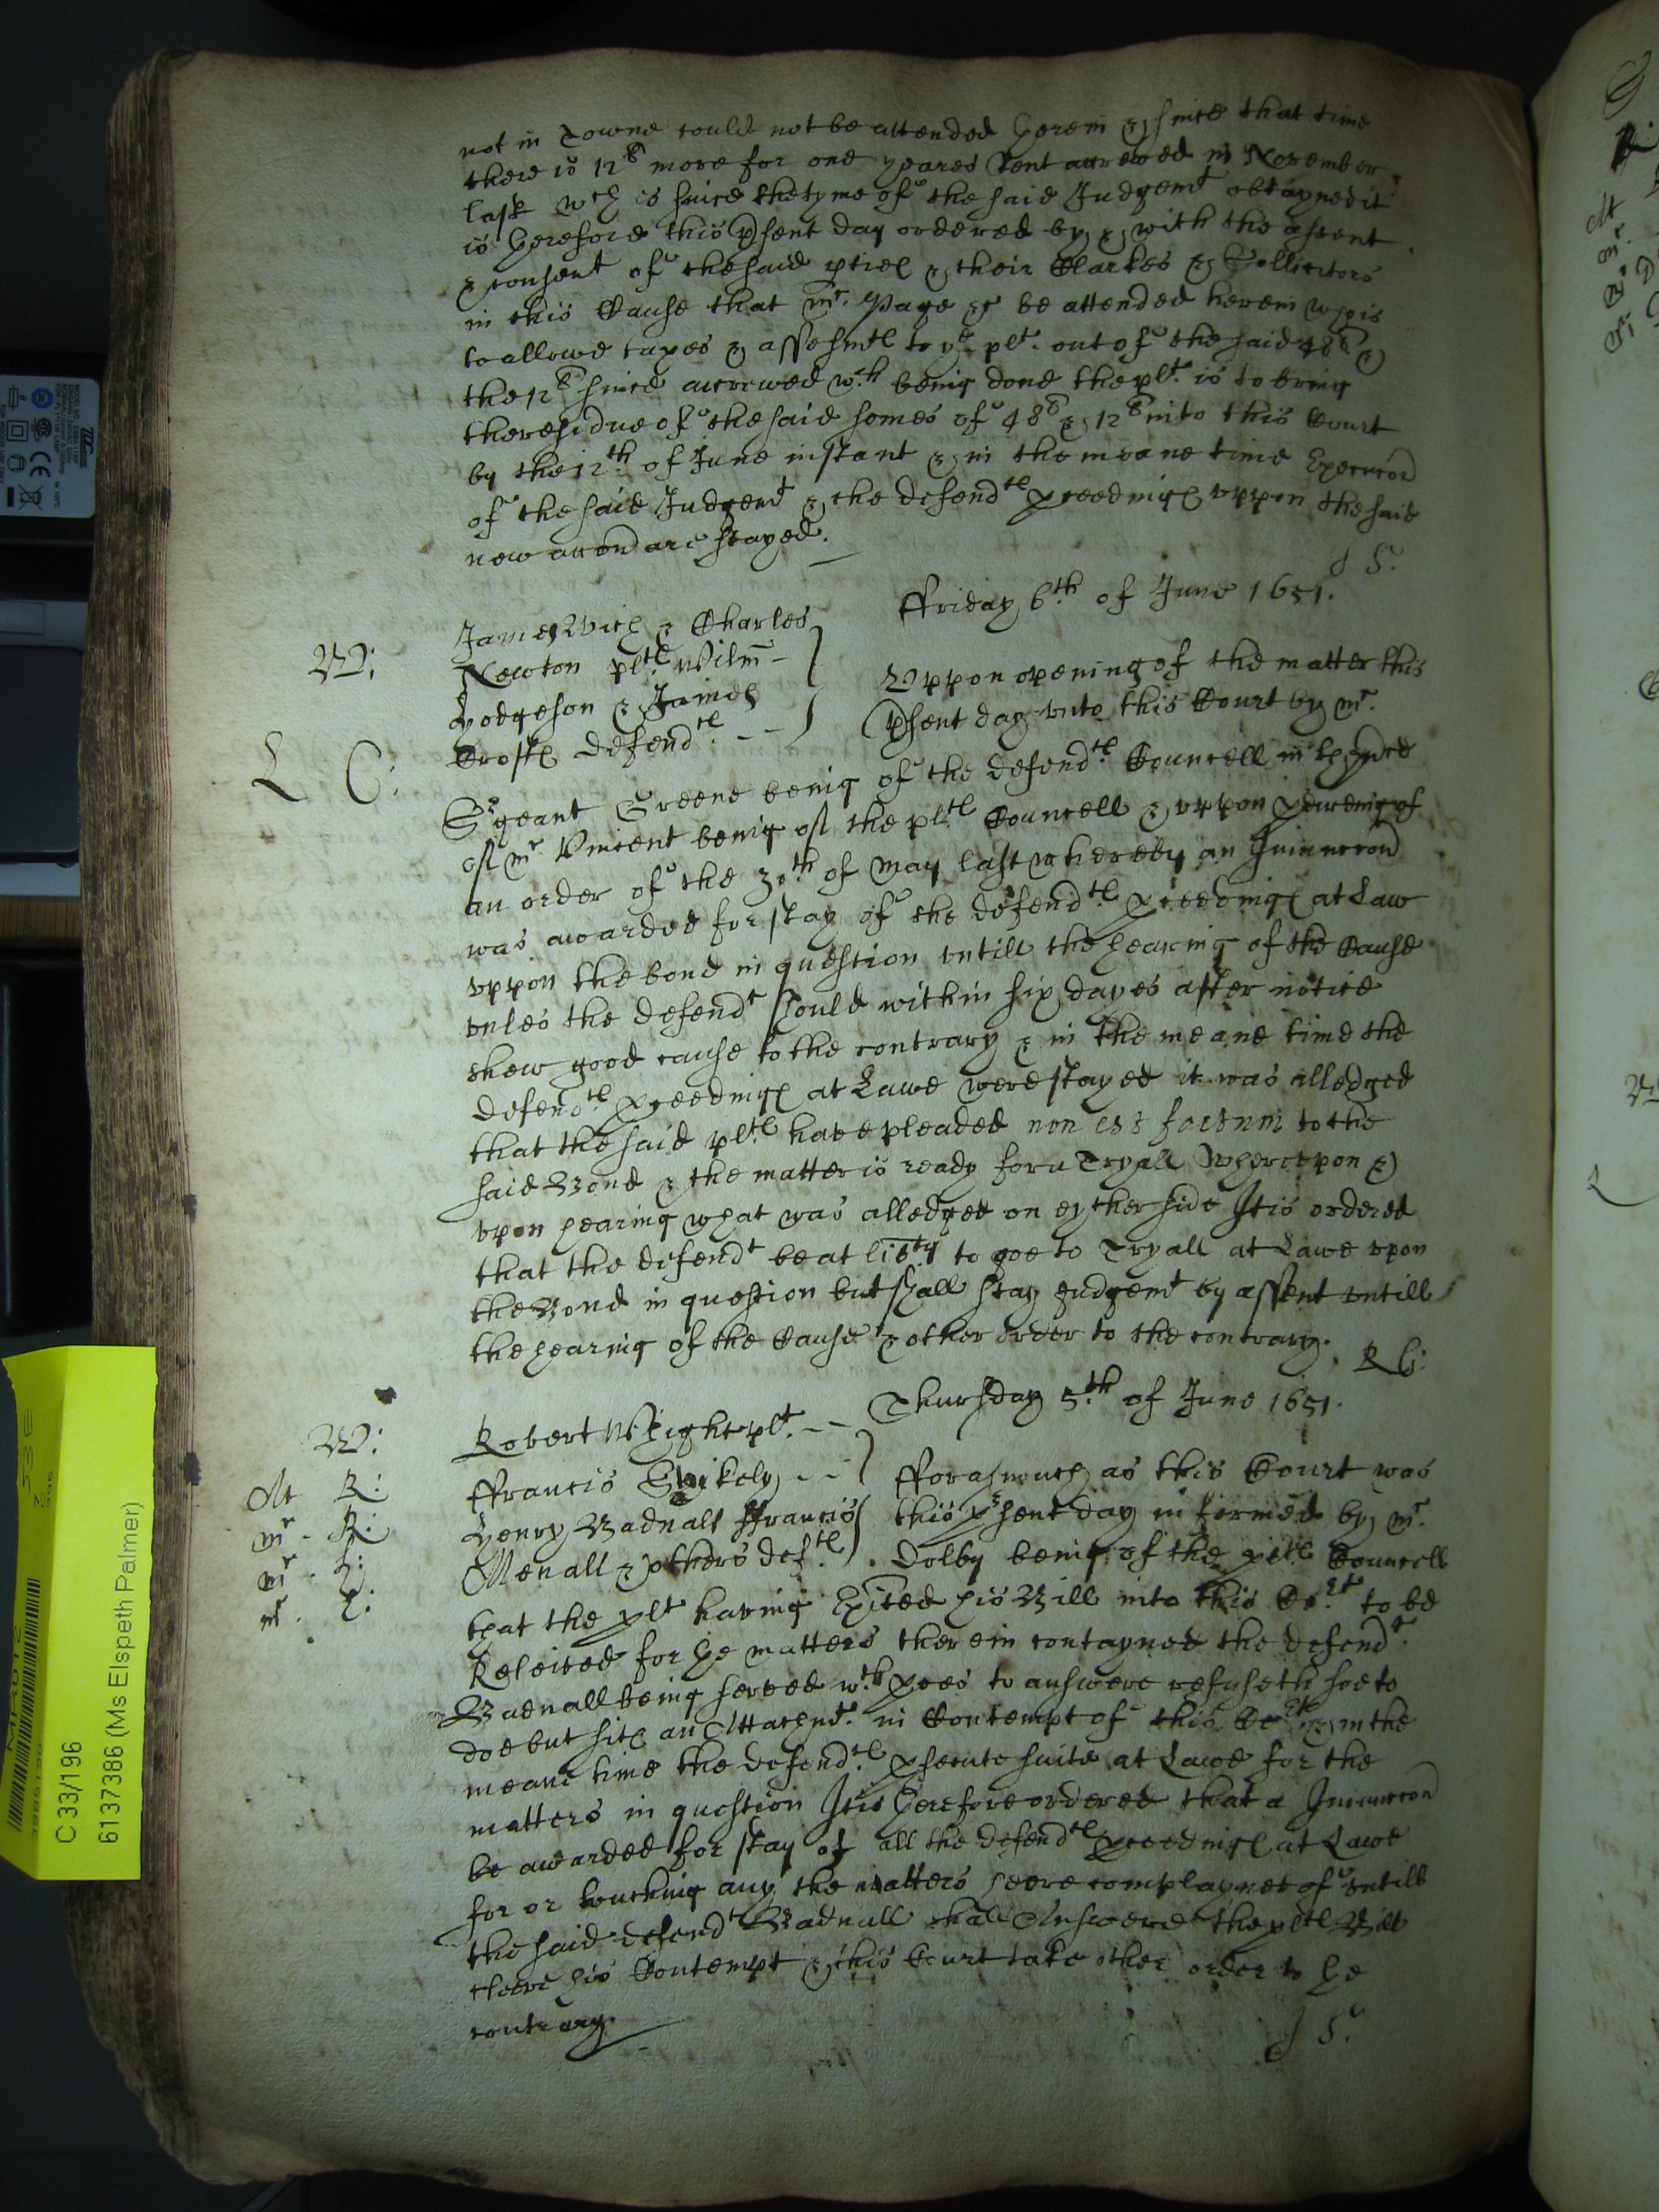 not in Towne could not be attended herein & since that time
there is 12li more for one yeares Rent accrewed in November
last wch is since the tyme of the said Judgemt obtayned it
is therefore this psent day ordered by & with the assent
& consent of the said pties & their Clarkes & Sollicitors
in this Cause that mr. Page &c be attended herein who is
to allowe taxes & assesmts to ye plt. out of the said 48li &
the 12li since accrewed wch being done the plt. is to bring
the residue of the said somes of 48li & 12li into this Court
by the 12th of June instant & in the meane time Execucon
of the said Judgemt & the defendts pceedings uppon the said
new accon are stayed.
J S.
ffriday 6th of June 1651.
W:
James & Charles
Newton plts Willm
Hodgeson & James
Crosse defendts
L C:
Uppon opening of the matter this
psent day unto this Court by mr.
Sergeant Greene being of the defendts Councell in
of mr Vincent being of the plts Councell & uppon of
an order of the 30th of may last whereby an Iniunccon
was awarded for stay of the defendts pceedings at Law
uppon the bond in question untill the hearing of the Cause
unles the defendt should within six dayes after notice
shew good cause to the contrary & in the meane time the
defendts pceedings at Lawe were stayed it was alledged
that the said plts have pleaded non est factum to the
said Bond & the matter is ready for a Tryall Whereupon &
upon hearing what was alledged on eyther side It is ordered
that the defendt be at libty to goe to Tryall at Lawe upon
the Bond in question but shall stay Judgemt by assent untill
the hearing of the Cause & other order to the contrary.
R
Thursday 5th of June 1651.
W:
Robert Wright plt.
At R:
mr. R:
mr.
mr.
ffrancis
Henry Badnall ffrancis
Menall & others defts
fforasmuch as this Court was
this psent day informed by mr.
Dolby being of the plts Councell
that the plt having Exited his Bill into this Cort to be
Releived for the matters therein contayned the defendt.
Badnall being served wth pces to answere refuseth soe to
doe but sits an Attachmt. in Contempt of this Cort & in the
meane time the defendts psecute suite at Lawe for the
matters in question It is therefore ordered that a Iniunccon
be awarded for stay of all the defendts pceedings at Lawe
for or touching any the matters heere complayned of untill
the said defendt Badnall shall Answere the plts Bill
cleere his Contempt & this Court take other order to the
contrary.
J S.
C 33/196
6137386 (Ms Elspeth Palmer)